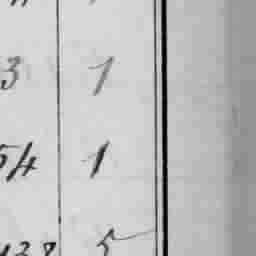 3 1
54 1
137 5